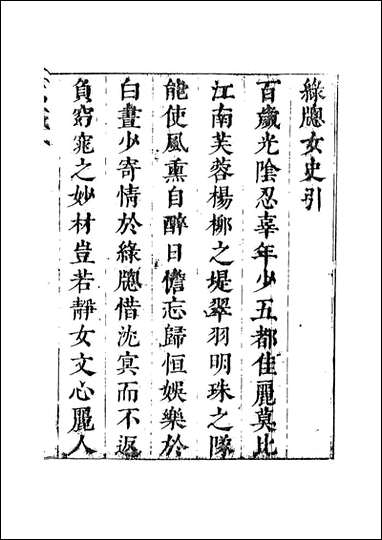 綠牕女史引
百歲光陰忍辜年少五都佳麗莫比
江南芙蓉楊柳之堤翠羽明珠之隊
能使風熏自醉日儋忘歸恒娛樂於
白晝少寄情於綠牕惜沈冥而不返
負窈窕之妙材豈若靜女文心麗人